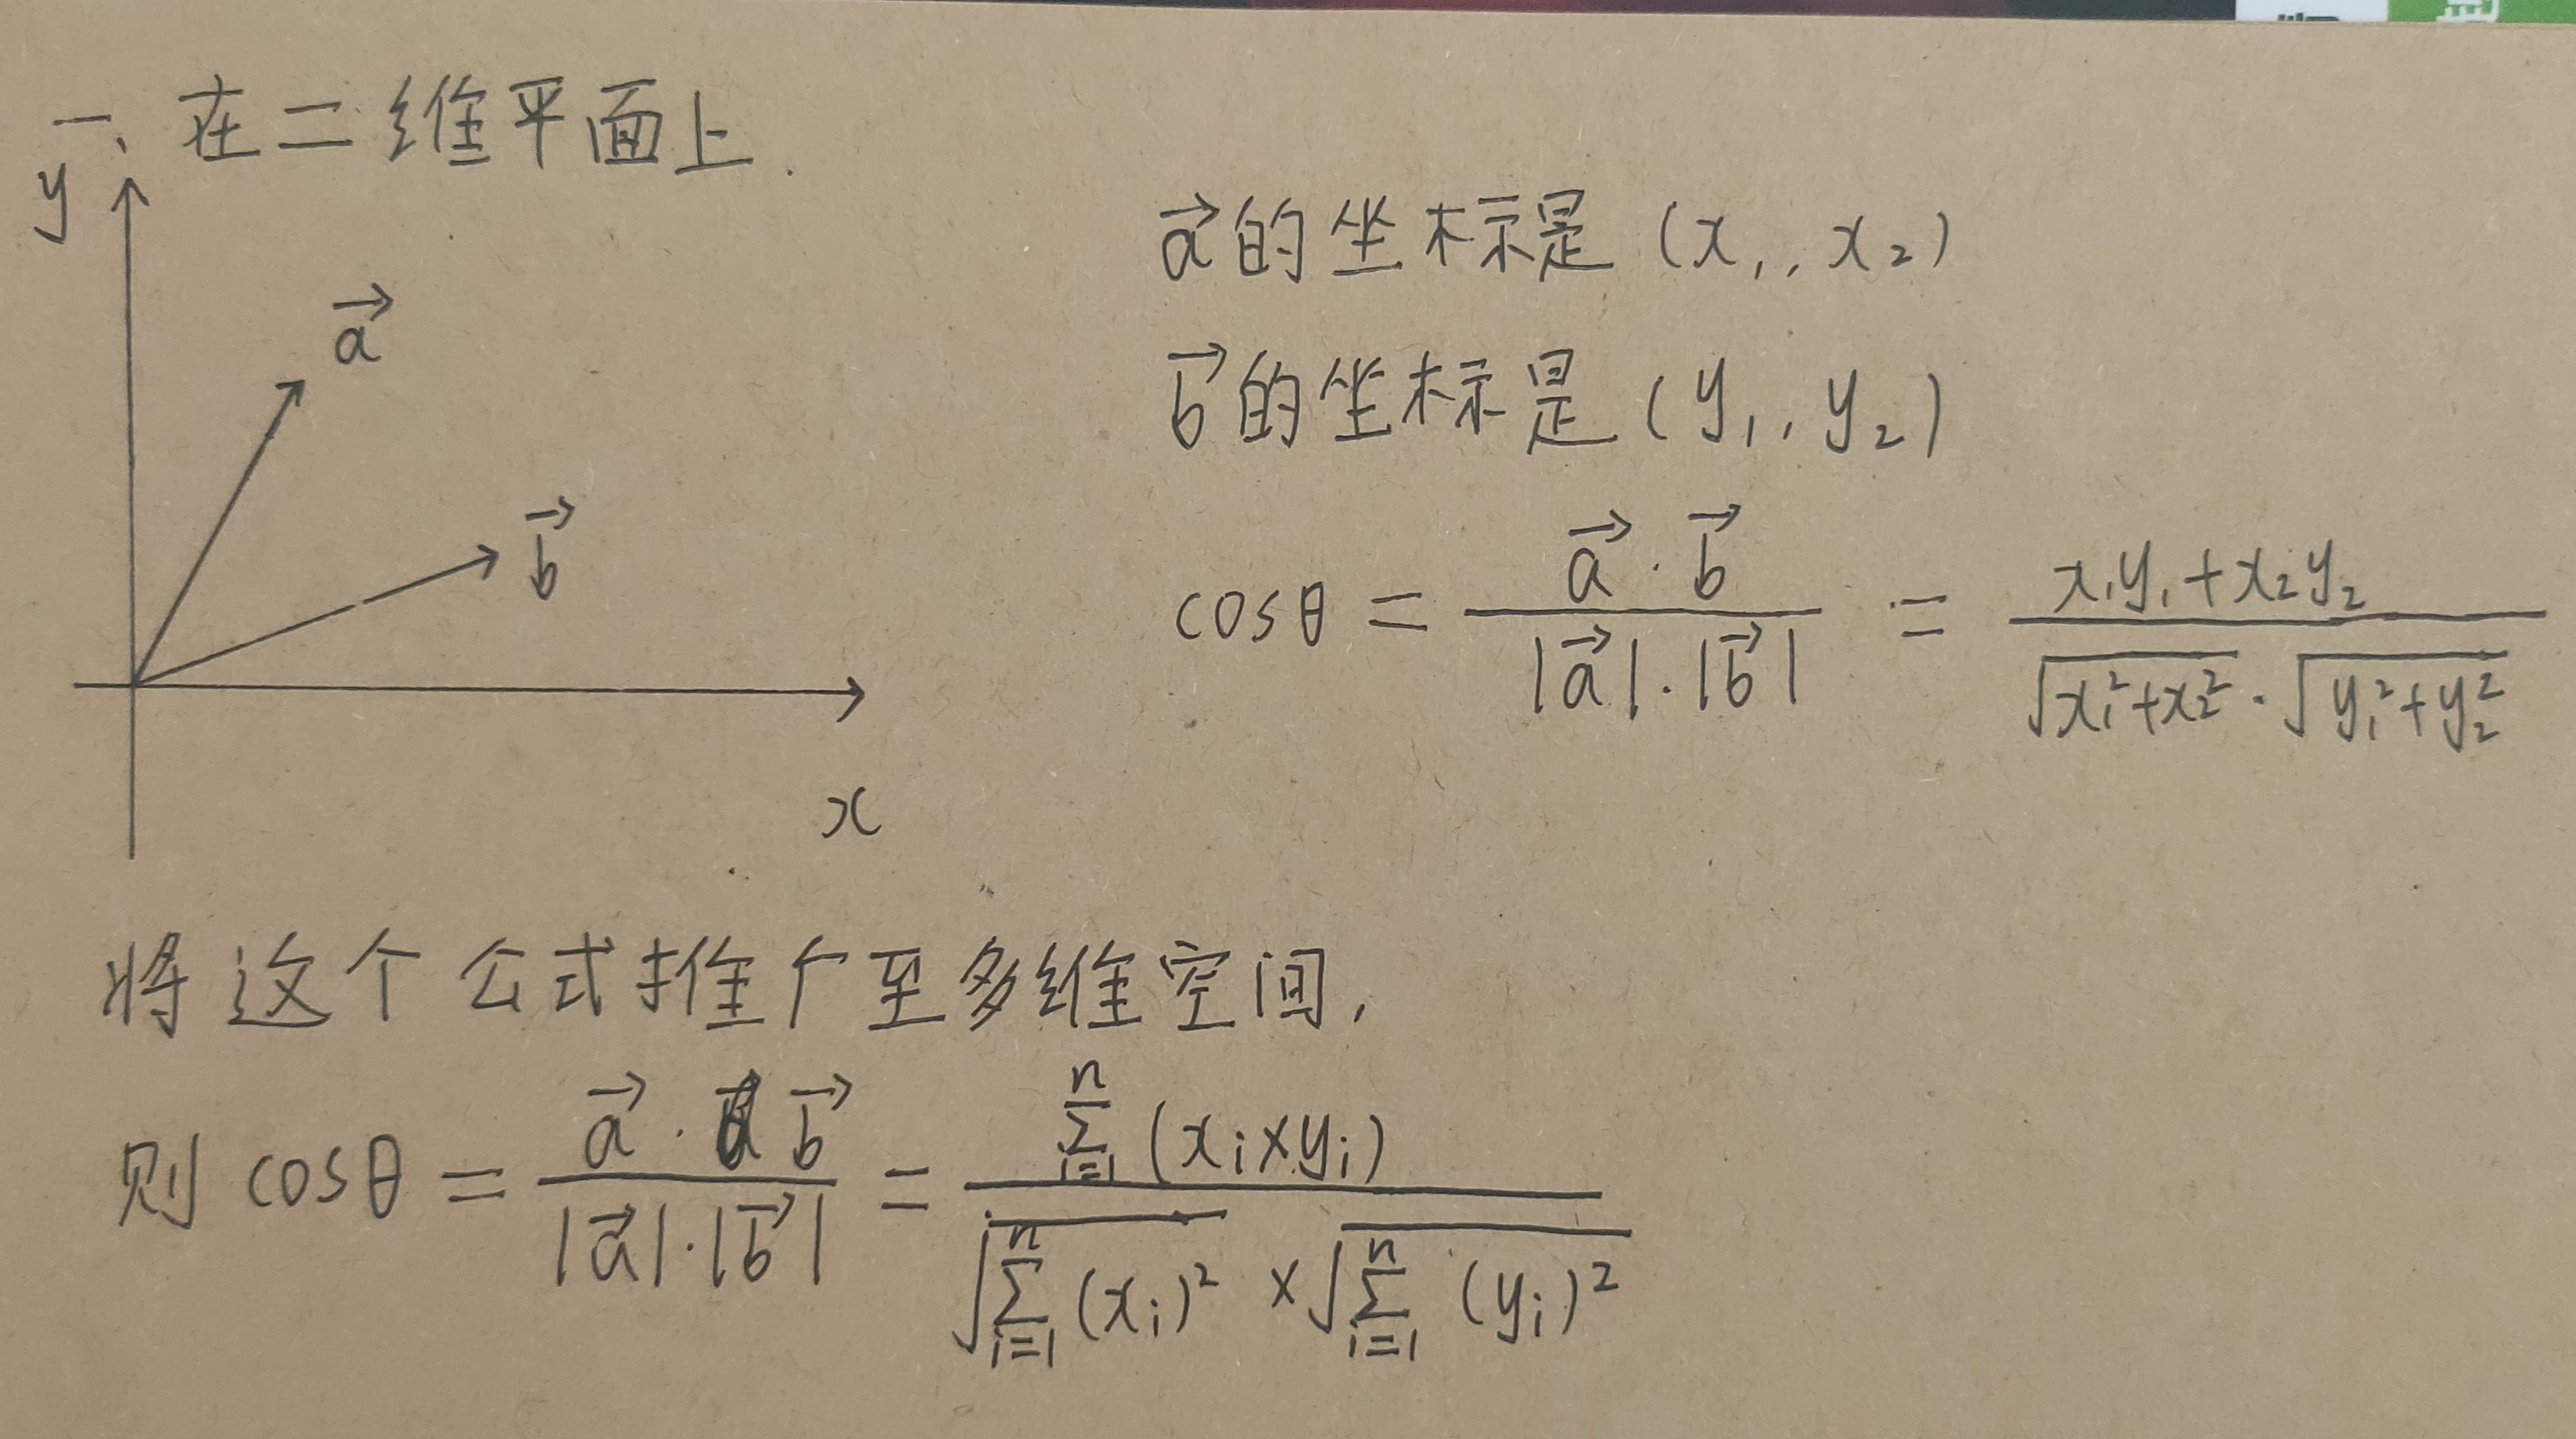 一、在二维平面上.
y
a⃗
b⃗
x
a⃗的坐标是 (x₁, x₂)
b⃗的坐标是 (y₁, y₂)
cosθ = (a⃗·b⃗)/(|a⃗|·|b⃗|) = (x₁y₁+x₂y₂)/(√(x₁²+x₂²)·√(y₁²+y₂²))
将这个公式推广至多维空间,
则 cosθ = (a⃗·b⃗)/(|a⃗|·|b⃗|) = (∑ⁿᵢ₌₁(xᵢ×yᵢ))/(√(∑ⁿᵢ₌₁(xᵢ)²)×√(∑ⁿᵢ₌₁(yᵢ)²))